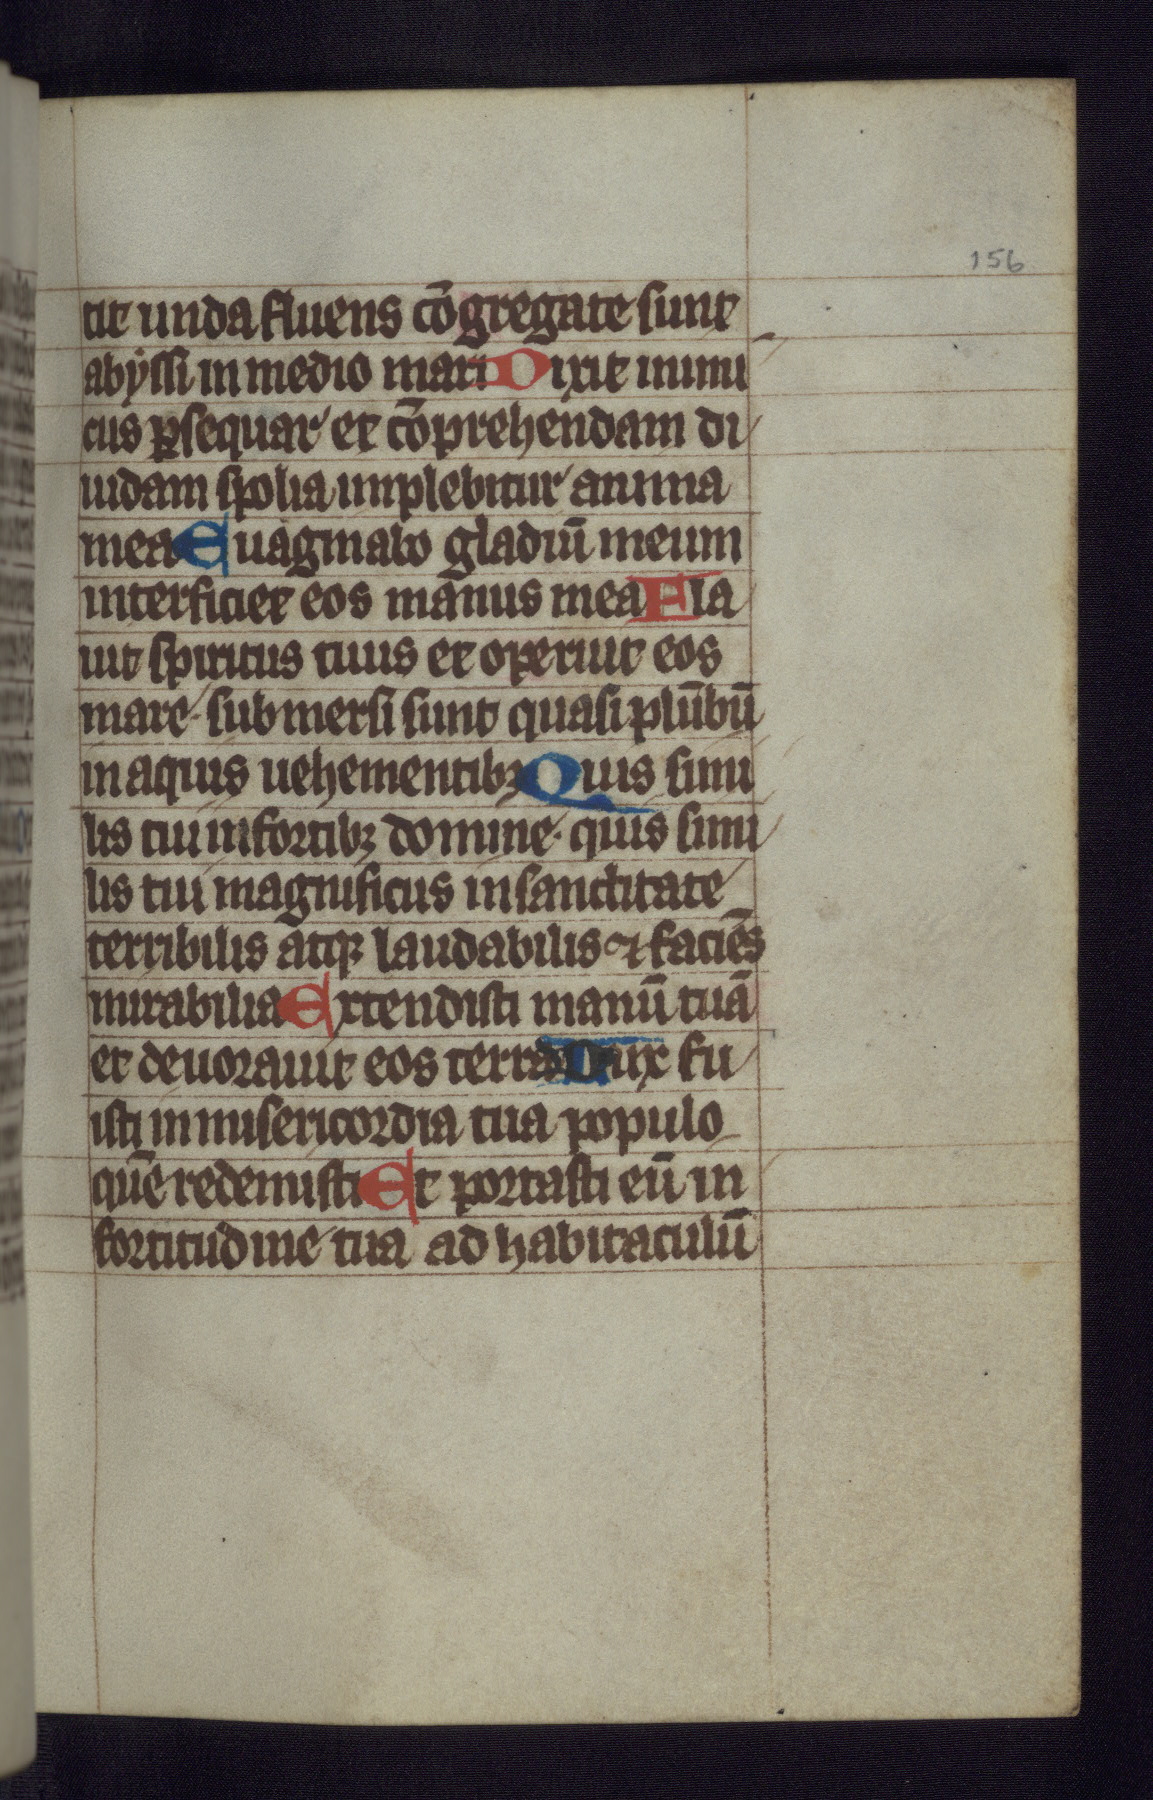 156
tit unda fluens cōgregate sunt
abẏssi in medio mari Dixit inimi
cus ꝑsequar et cōprehendam di
uidam spolia implebitur anima
mea Euaginabo gladiū meum
interficiet eos manus mea Fla
uit spiritus tuus et operuit eos
mare · submersi sunt quasi plūbū
in aquis uehementibꝫ Quis simi
lis tui in fortibꝫ domine · quis simi
lis tui magnificus in sanctitate
terribilis atqꝫ laudabilis & faciēs
mirabilia Extendisti manū tuā
et deuorauit eos terra Dux fu
isti in misericordia tua populo
quē redemisti Et portasti eū in
fortitudine tua ad habitaculū